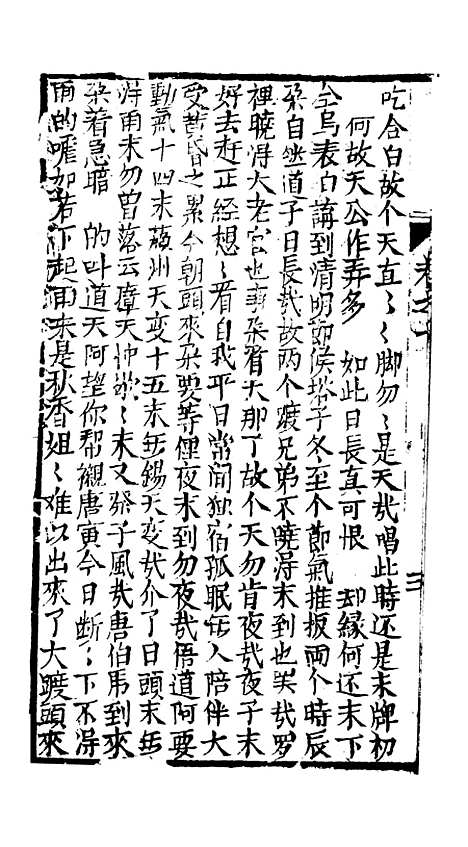 吃合白故个天直〻〻脚勿〻是天㢤唱此時还是未牌初
何故天公作弄多 如此日長真可恨 却緣何还未下
全烏表白講到清明節候搭子冬至个節氣推扳兩个時辰
朶自迷道子日長㢤故两个踱兄弟不曉淂未到也哭㢤罗
裡曉淂大老官也事朶看天那了故个天勿肯夜㢤夜子末
好去赶正經想〻看自我平日常間独宿孤眠無人陪伴大
受黃昏之累今朝頭來朶要等俚夜末到勿夜㢤悟道阿要
動氣十四末蘇州天变十五末無錫天变㢤介了日頭末無
淂雨末勿曾落云障天冲㰸〻末又發子風㢤唐伯虎到來
朶着急暗 的叫道天阿望你帮襯唐寅今日断〻下不淂
雨的嚯如若下起雨來是秋香姐〻难以出來了大踱頭來
卷之
三